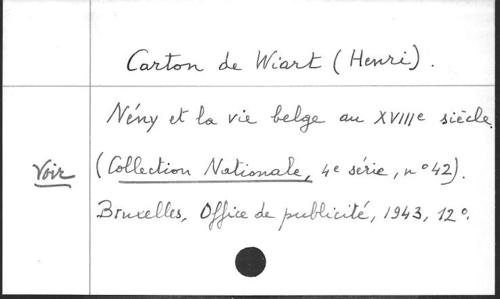 Carton de Wiart (Henri).
Nény et la vie belge au XVIIIe siècle.
Voir (Collection Nationale, 4e série, n° 42).
Bruxelles, Office de publicité, 1943, 12°.